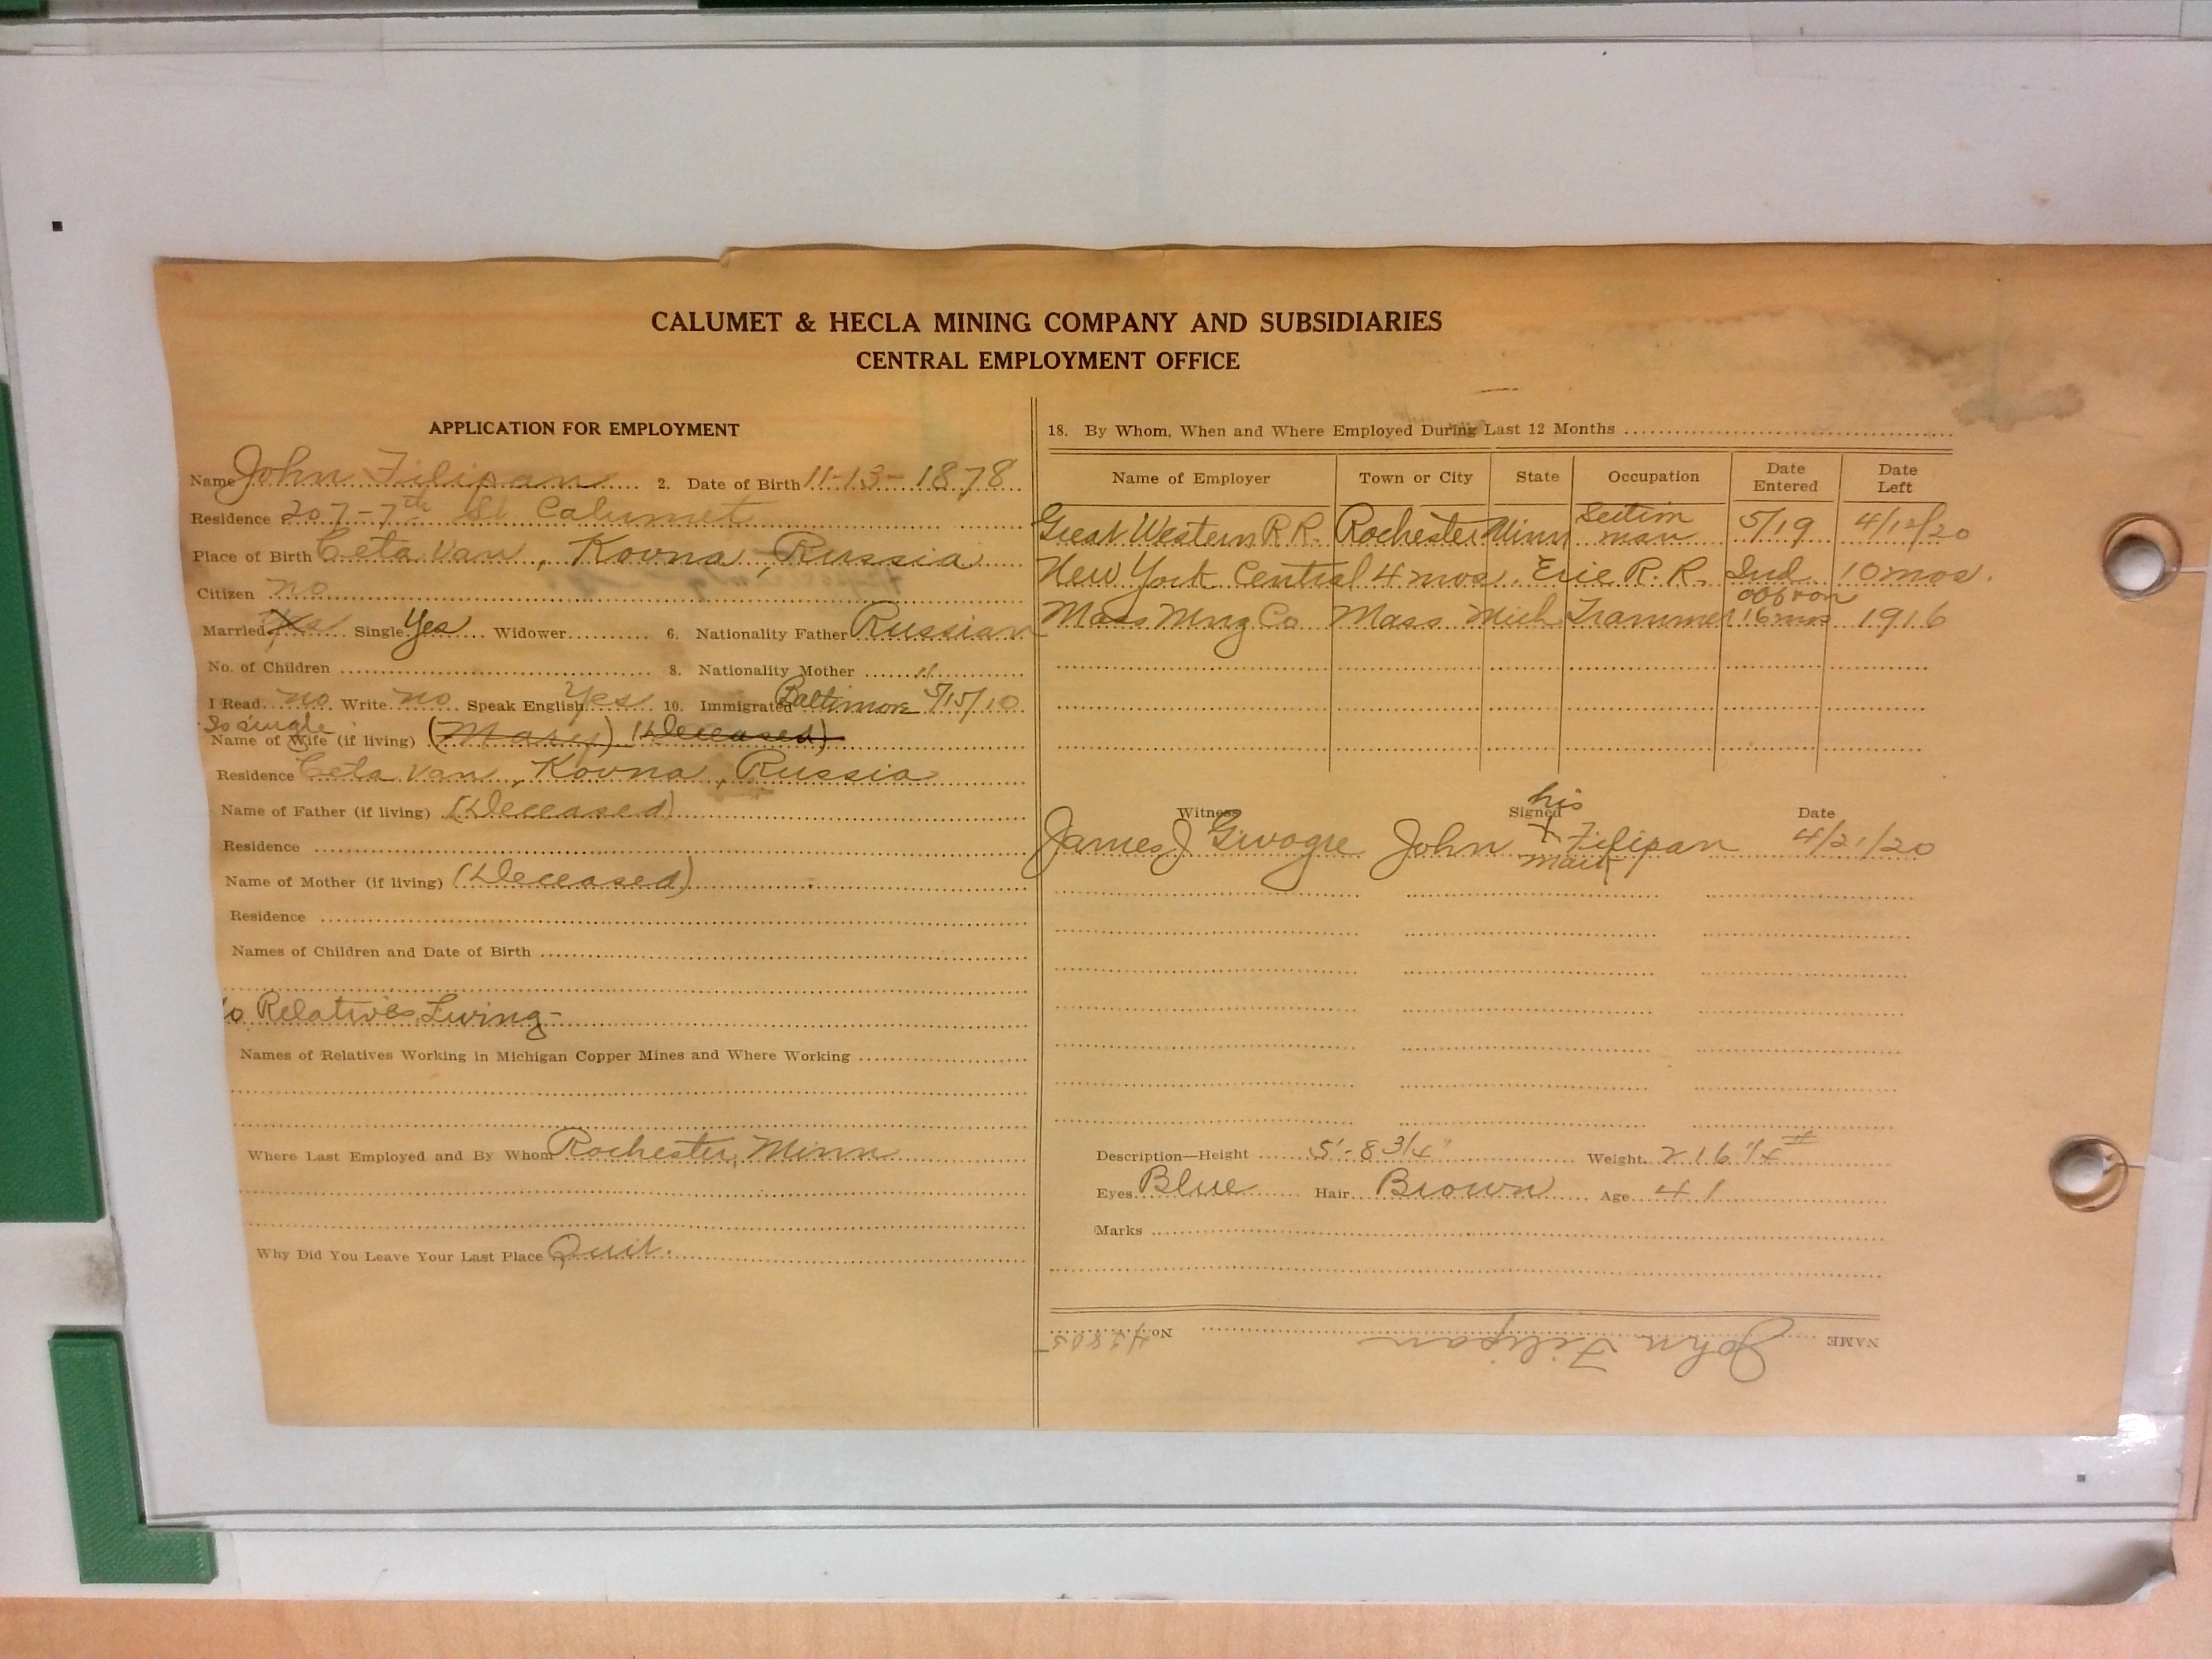 CALUMET & HECLA MINING COMPANY AND SUBSIDIARIES
CENTRAL EMPLOYMENT OFFICE
APPLICATION FOR EMPLOYMENT
Name John Filipan 2. Date of Birth 11-13-1878
Residence 207-7th St Calumet
Place of Birth Ceta Van, Kovna, Russia
Citizen no
Married Yes Single Yes Widower 6. Nationality Father Russian
No. of Children 8. Nationality Mother "
I Read no Write no Speak English Yes 10. Immigrated Baltimore 5/15/10
Is single
Name of Wife (if living) (Mary) (Deceased)
Residence Ceta Van, Kovna, Russia
Name of Father (if living) (Deceased)
Residence
Name of Mother (if living) (Deceased)
Residence
Names of Children and Date of Birth
o Relatives Living-
Names of Relatives Working in Michigan Copper Mines and Where Working
Where Last Employed and By Whom Rochester, Minn
Why Did You Leave Your Last Place Quit.
18. By Whom, When and Where Employed During Last 12 Months
Name of Employer Town or City State Occupation Date Entered Date Left
Great Western R.R. Rochester Minn Section man 5/19 4/12/20
New York Central 4 mos. Erie R.R. Ind 10 mos.
off & on
Mass Mng Co Mass Mich Trammer 16 mos 1916
Witness Signed Date
James J Givogre John his X mark Filipan 4/21/20
Description—Height 5'-8 3/4" Weight 216 1/4 #
Eyes Blue Hair Brown Age 41
Marks
NAME John Filipan No.